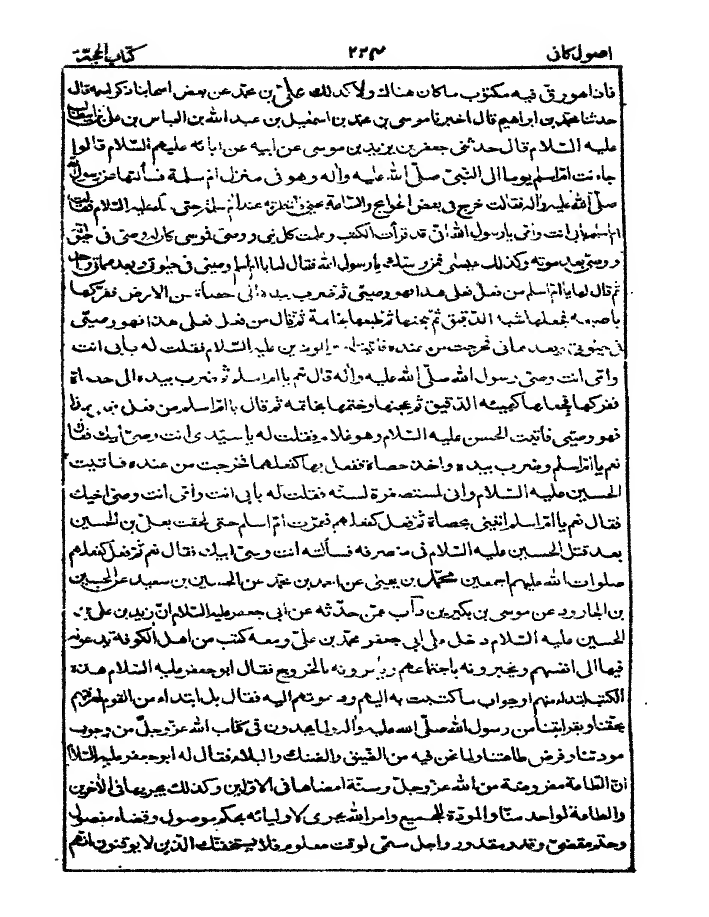 اصول كافى ٢٢٣ كتاب الحجة
فاذا هو رق فيه مكتوب ما كان هناك ولا كذلك على بن محمد عن بعض اصحابنا ذكر اسمه قال
حدثنا محمد بن ابراهيم قال اخبرنا موسى بن محمد بن اسمعيل بن عبد الله بن العباس بن على
عليه السلام قال حدثنى جعفر بن زيد بن موسى عن ابيه عن ابائه عليهم السلام قالوا
جاءت ام اسلم يوما الى النبى صلى الله عليه واله وهو فى منزل ام سلمة فسألتها عن رسول الله
صلى الله عليه واله فقالت خرج فى بعض الحوائج والساعة يجئ فانتظرته عند ام سلمة حتى جاء عليه السلام فقالت
ام اسلم بابى انت وامى يا رسول الله انى قد قرأت الكتب وعلمت كل نبى ووصى فموسى كان له وصى فى حيوته
ووصى بعد موته وكذلك عيسى فمن وصيك يا رسول الله فقال لها يا ام اسلم وصيى فى حيوتى وبعد مماتى واحد
ثم قال لها يا ام اسلم من فعل فعلى هذا فهو وصيى ثم ضرب بيده الى حصاة من الارض ففركها
باصبعه فجعلها شبه الدقيق ثم عجنها ثم طبعها بخاتمه ثم قال من فعل فعلى هذا فهو وصيى
فى حيوتى وبعد مماتى فخرجت من عنده فاتيت امير المؤمنين عليه السلام فقلت له بابى انت
وامى انت وصى رسول الله صلى الله عليه واله قال نعم يا ام اسلم ثم ضرب بيده الى حصاة
ففركها فجعلها كهيئة الدقيق ثم عجنها وختمها بخاتمه ثم قال يا ام اسلم من فعل فعلى هذا
فهو وصيى فاتيت الحسن عليه السلام وهو غلام فقلت له يا سيدى انت وصى ابيك فقال
نعم يا ام اسلم وضرب بيده واخذ حصاة ففعل بها كفعلهما فخرجت من عنده فاتيت
الحسين عليه السلام وانى لمستصغرة لسنه فقلت له بابى انت وامى انت وصى اخيك
فقال نعم يا ام اسلم ايتينى بحصاة ثم فعل كفعلهم فعمرت ام اسلم حتى لحقت بعلى بن الحسين
بعد قتل الحسين عليه السلام فى منصرفه فسألته انت وصى ابيك فقال نعم ثم فعل كفعلهم
صلوات الله عليهم اجمعين محمد بن يحيى عن احمد بن محمد عن الحسين بن سعيد عن الحسين
بن الجارود عن موسى بن بكير بن دأب عمن حدثه عن ابى جعفر عليه السلام ان زيد بن على بن
الحسين عليه السلام دخل على ابى جعفر محمد بن على ومعه كتب من اهل الكوفة يدعونه
فيها الى انفسهم ويخبرونه باجتماعهم ويأمرونه بالخروج فقال ابو جعفر عليه السلام هذه
الكتب ابتداء منهم او جواب ما كتبت به اليهم ودعوتهم اليه فقال بل ابتداء من القوم لمعرفتهم
بحقنا وبقرابتنا من رسول الله صلى الله عليه واله ولما يجدون فى كتاب الله عز وجل من وجوب
مودتنا وفرض طاعتنا ولما نحن فيه من الضيق والضنك والبلاء فقال له ابو جعفر عليه السلام
ان الطاعة مفروضة من الله عز وجل وسنة امضاها فى الاولين وكذلك يجريها فى الاخرين
والطاعة لواحد منا والمودة للجميع وامر الله يجرى لاوليائه بحكم موصول وقضاء مفصول
وحتم مقضى وقدر مقدور واجل مسمى لوقت معلوم فلا يستخفنك الذين لا يوقنون انهم